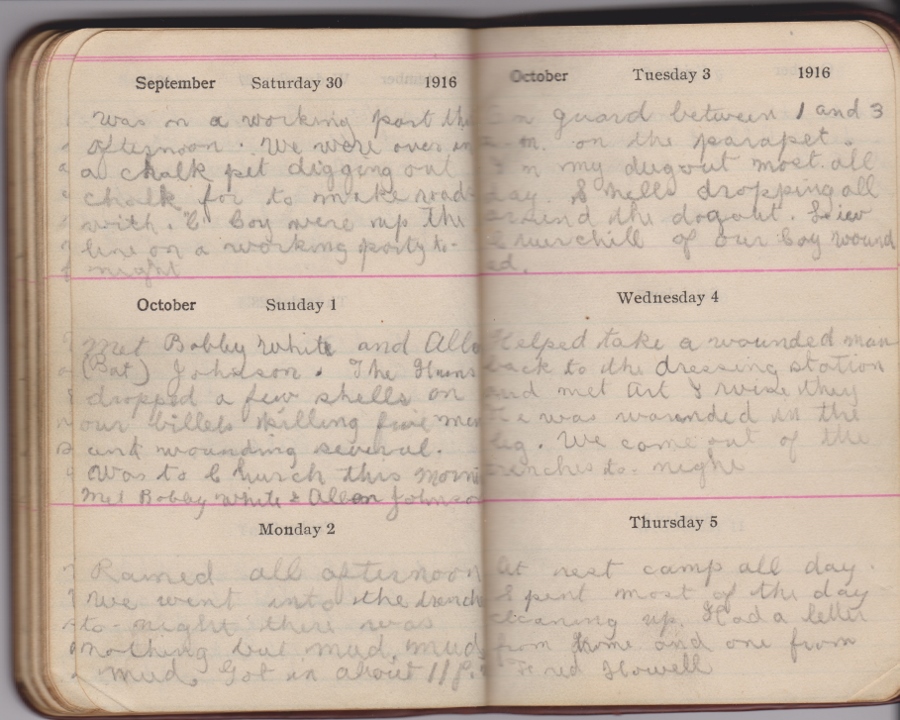 September Saturday 30 1916
Was on a working part th
afternoon. We were over in
a chalk pit digging out
chalk for to make road
with. C Coy were up the
line on a working party to-
night
October Sunday 1
Met Bobby White and Alle
(Bat) Johnson. The Huns
dropped a few shells on
our billets killing five men
and wounding several.
Was to Church this morni
Met Bobby White & Allen Johnson
Monday 2
Rained all afternoon
We went into the trench
to-night there was
nothing but mud, mud
mud. Got in about 11 P.
October Tuesday 3 1916
On guard between 1 and 3
a.m. on the parapet.
In my dugout most all
day. Shells dropping all
around the dogout. Saw
Churchill of our Coy wound
ed.
Wednesday 4
Helped take a wounded man
back to the dressing station
and met Art
He was wounded in the
leg. We came out of the
trenches to-night
Thursday 5
At rest camp all day.
Spent most of the day
cleaning up. Had a letter
from home and one from
Fred Howell